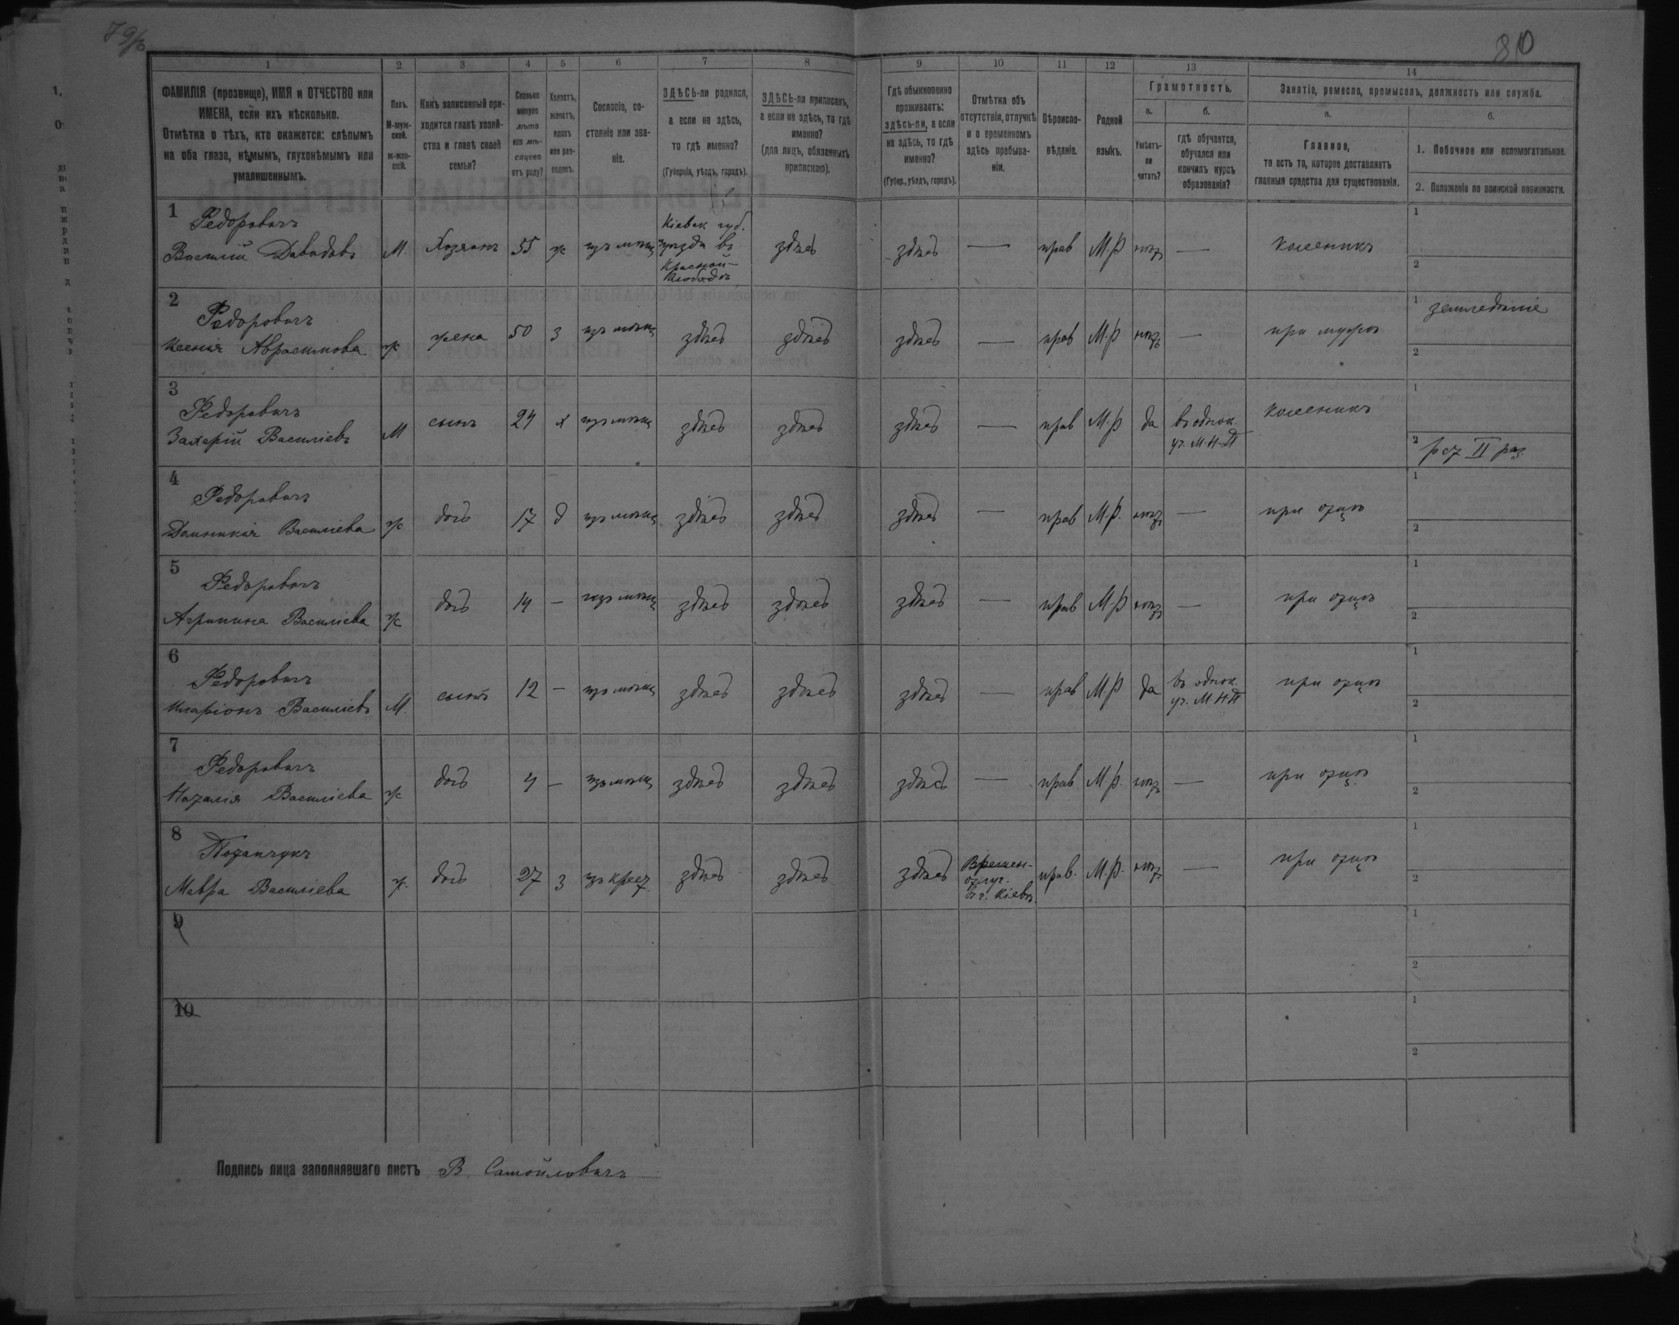 79/в
80
1 2 3 4 5 6 7 8 9 10 11 12 13 14
ФАМИЛІЯ (прозвище), ИМЯ и ОТЧЕСТВО или
ИМЕНА, если ихъ нѣсколько.
Отмѣтка о тѣхъ, кто окажется: слѣпымъ
на оба глаза, нѣмымъ, глухонѣмымъ или
умалишеннымъ.
Полъ.
М-муж-
ской.
ж-жен-
скій.
Какъ записанный при-
ходится главѣ хозяй-
ства и главѣ своей
семьи?
Сколько
минуло
лѣтъ
или мѣ-
сяцевъ
отъ роду?
Холостъ,
женатъ,
вдовъ
или раз-
веденъ.
Сословіе, со-
стояніе или зва-
ніе.
ЗДѢСЬ-ли родился,
а если не здѣсь,
то гдѣ именно?
(Губернія, уѣздъ, городъ).
ЗДѢСЬ-ли приписанъ,
а если не здѣсь, то гдѣ
именно?
(для лицъ, обязанныхъ
припискою).
Гдѣ обыкновенно
проживаетъ:
здѣсь-ли, а если
не здѣсь, то гдѣ
именно?
(Губер., уѣздъ, городъ).
Отмѣтка объ
отсутствіи, отлучкѣ
и о временномъ
здѣсь пребыва-
ніи.
Вѣроиспо-
вѣданіе.
Родной
языкъ.
Грамотность.
а.
Умѣетъ-
ли
читать?
б.
гдѣ обучается,
обучался или
кончилъ курсъ
образованія?
Занятіе, ремесло, промыселъ, должность или служба.
а.
Главное,
то есть то, которое доставляетъ
главныя средства для существованія.
б.
1. Побочное или вспомогательное.
2. Положеніе по воинской повинности.
1 Федоровичъ
Василій Давидовъ М. Хозяинъ 55 ж изъ мѣщ Кіевск губ. здѣсь здѣсь — прав М.Р нѣтъ — колесникъ
2 Федоровичъ
Ксенія ж жена 50 з изъ мѣщ здѣсь здѣсь здѣсь — прав М.Р нѣтъ — при мужѣ 1 земледѣліе
3 Федоровичъ
Захарій Василіевъ М сынъ 24 х изъ мѣщ здѣсь здѣсь здѣсь — прав М.Р да въ однок. колесникъ
уч. М.Н.П 2 рат II раз
4 Федоровичъ
Василіева ж дочь 17 д изъ мѣщ здѣсь здѣсь здѣсь — прав М.Р. нѣтъ — при отцѣ
5 Федоровичъ
Агрипина Василіева ж дочь 14 — изъ мѣщ здѣсь здѣсь здѣсь — прав М.Р нѣтъ — при отцѣ
6 Федоровичъ
Иларіонъ Василіевъ М. сынъ 12 — изъ мѣщ здѣсь здѣсь здѣсь — прав М.Р да въ однок. при отцѣ
уч. М.Н.П
7 Федоровичъ
Наталія Василіева ж дочь 4 — изъ мѣщ здѣсь здѣсь здѣсь — прав М.Р. нѣтъ — при отцѣ
8 Потапчукъ
Мавра Василіева ж. дочь 27 з изъ крест здѣсь здѣсь здѣсь Времен- прав. М.Р. нѣтъ — при отцѣ
отлуч.
въ г. Кіевъ
9
10
Подпись лица заполнявшаго листъ В. Самойловичъ